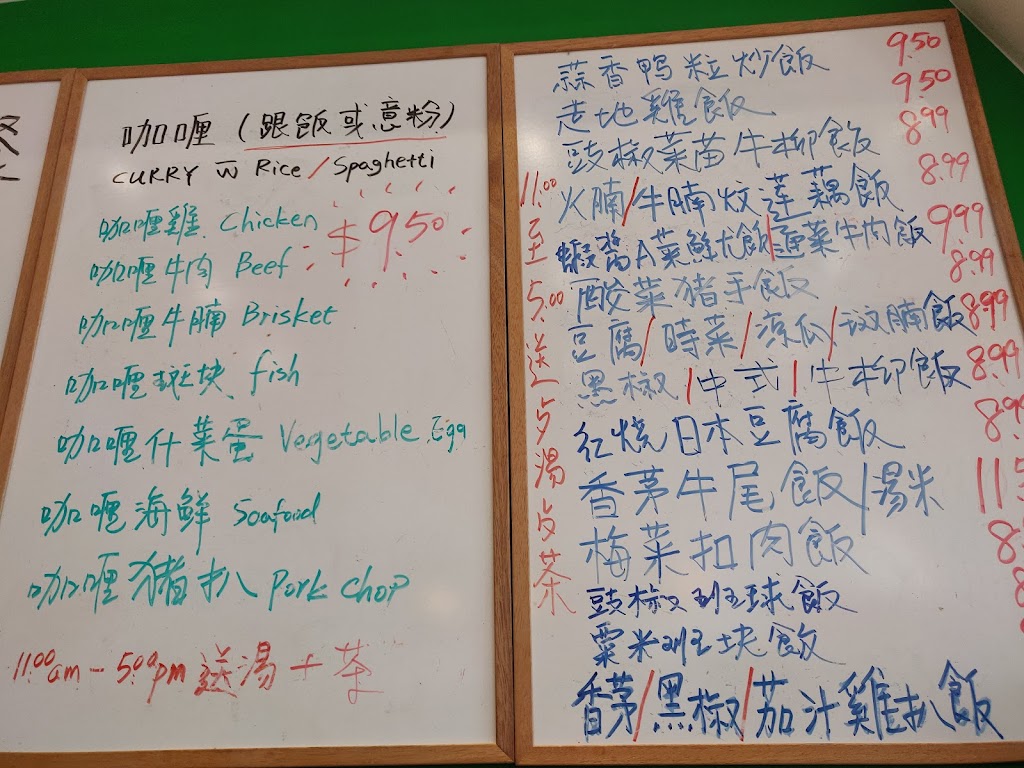 咖喱 (跟飯或意粉)
CURRY w Rice / Spaghetti
咖喱雞 Chicken
$9.50
咖喱牛肉 Beef
咖喱牛腩 Brisket
咖喱斑块 fish
咖喱什菜蛋 Vegetable Egg
咖喱海鮮 Seafood
咖喱猪扒 Pork Chop
11:00am - 5:00pm 送湯 + 茶
11:00 至 5:00 送 湯 茶
蒜香鴨粒炒飯 9.50
走地雞飯 9.50
豉椒菜苗牛柳飯 8.99
火腩/牛腩炆蓮藕飯 8.99
蝦醬A菜鮮尤飯/通菜牛肉飯 9.99
酸菜猪手飯 8.99
豆腐/時菜/涼瓜/斑腩飯 8.99
黑椒/中式/牛柳飯 8.99
红烧日本豆腐飯
香茅牛尾飯/湯米
梅菜扣肉飯
豉椒斑球飯
粟米斑块飯
香茅/黑椒/茄汁雞扒飯